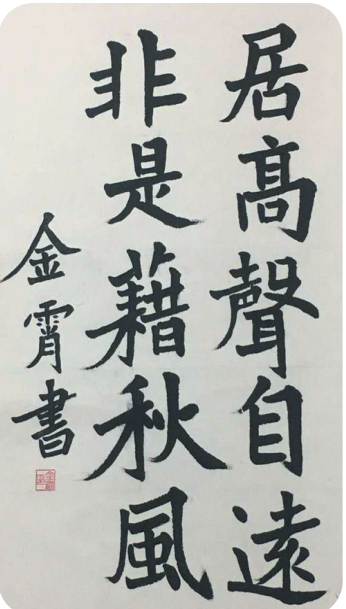 居高聲自遠
非是藉秋風
金霄書